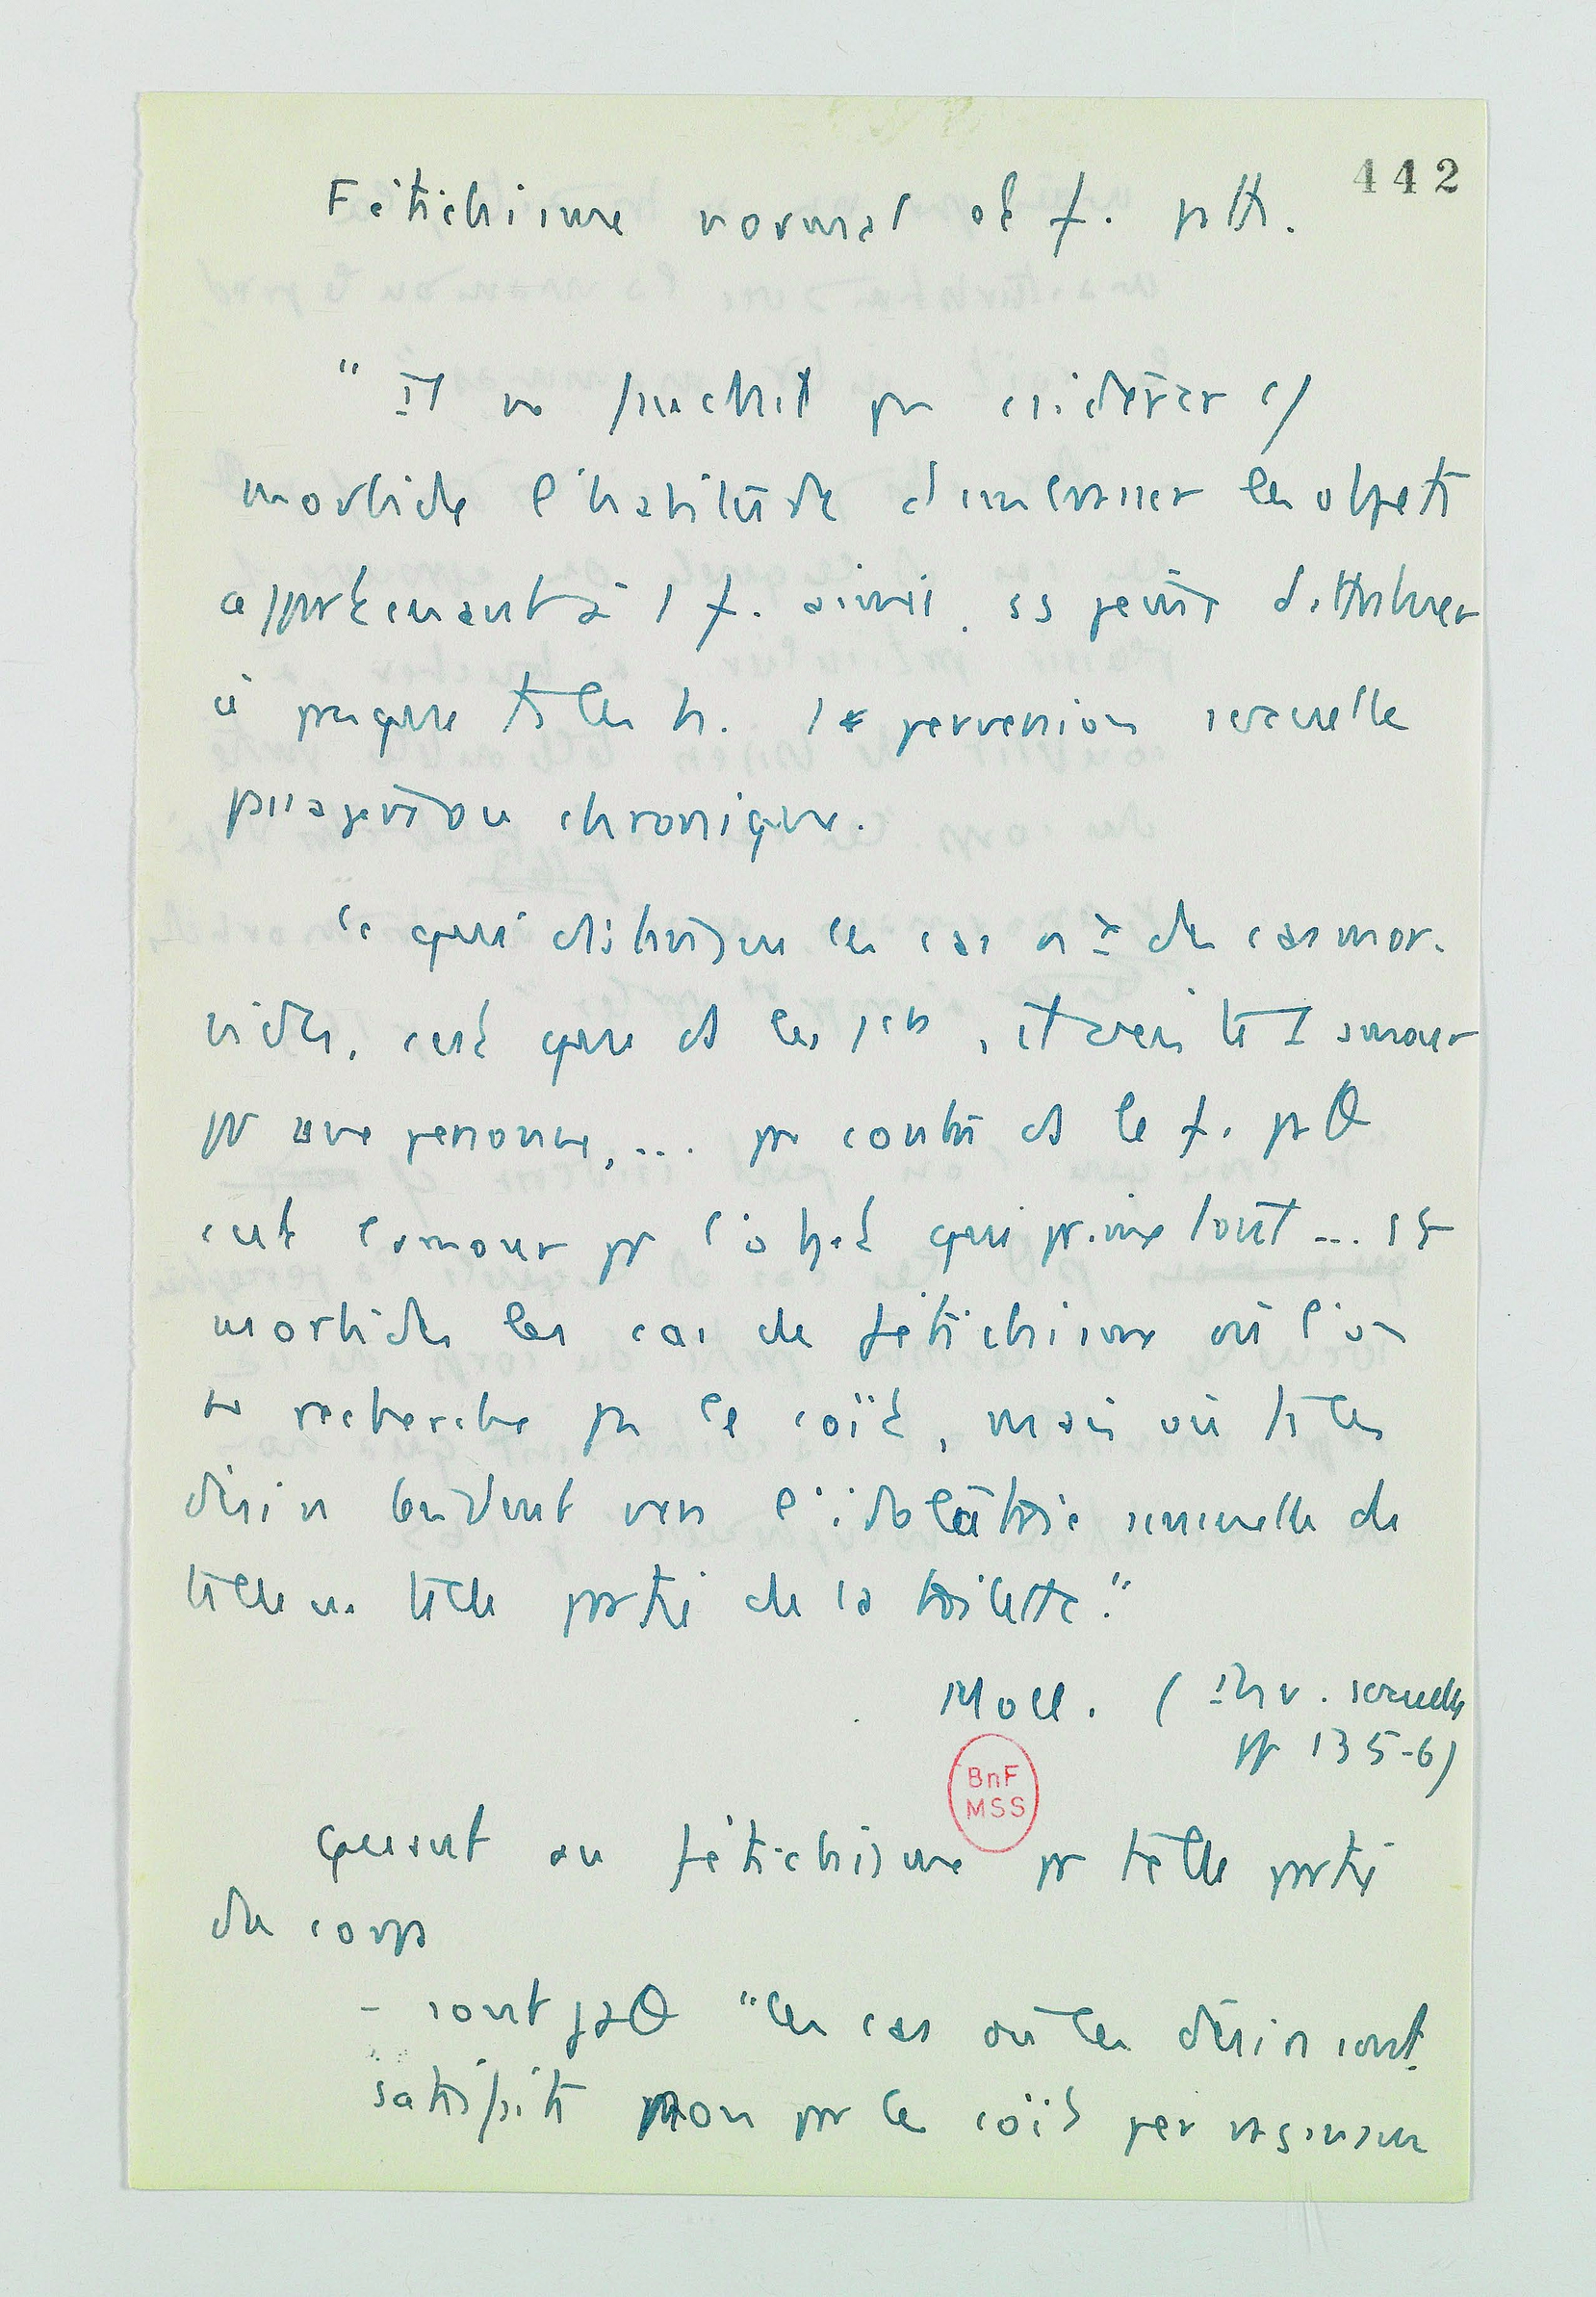 442
Fétichisme normal et f. pθ.
" Il ne faudrait pas considérer c/
morbide l'habitude d'embrasser les objets
appartenant à 1 f. aimée, ss peine d'attribuer
à presque ts les h. 1 perversion sexuelle
passagère ou chronique.
Ce qui distingue les cas des cas mor-
bides, c'est que ds les 1ers, il s'agit de l'amour
pr une personne, ... par contre ds le f. pθ
c'est l'amour pr l'objet qui prime tout ... st
morbides les cas de fétichisme où l'on
ne recherche pas le coït, mais où ts les
désirs tendent vers l'idolâtrie sensuelle de
telle ou telle partie de la toilette."
Moll. ( Inv. sexuelle
pp 135-6)
Quant au fétichisme pr telle partie
du corps
- sont pθ "les cas où les désirs sont
satisfaits non par le coït per vaginam
BnF
MSS